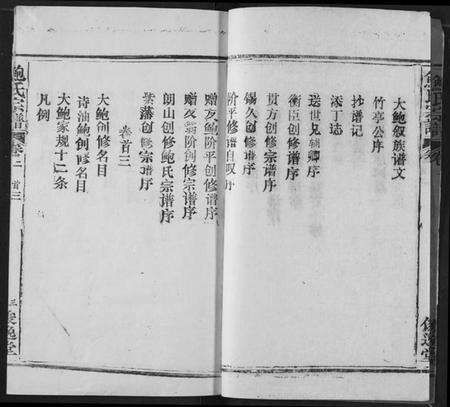 大鲍叙族谱文
竹亭公序
抄譜記
添丁誌
送世兄朝卿序
衡臣创修宗谱序
貫方创修宗谱序
錫久创修宗谱序
阶平修谱自叹序
赠友鲍阶平创修宗谱序
赠友翁阶创修宗谱序
朗山创修鲍氏宗谱序
紫藩创修宗谱序
卷首三
大鲍创修名目
诗油鲍创修名目
大鲍家规十二条
凡例
鲍氏宗譜
卷之首三
三